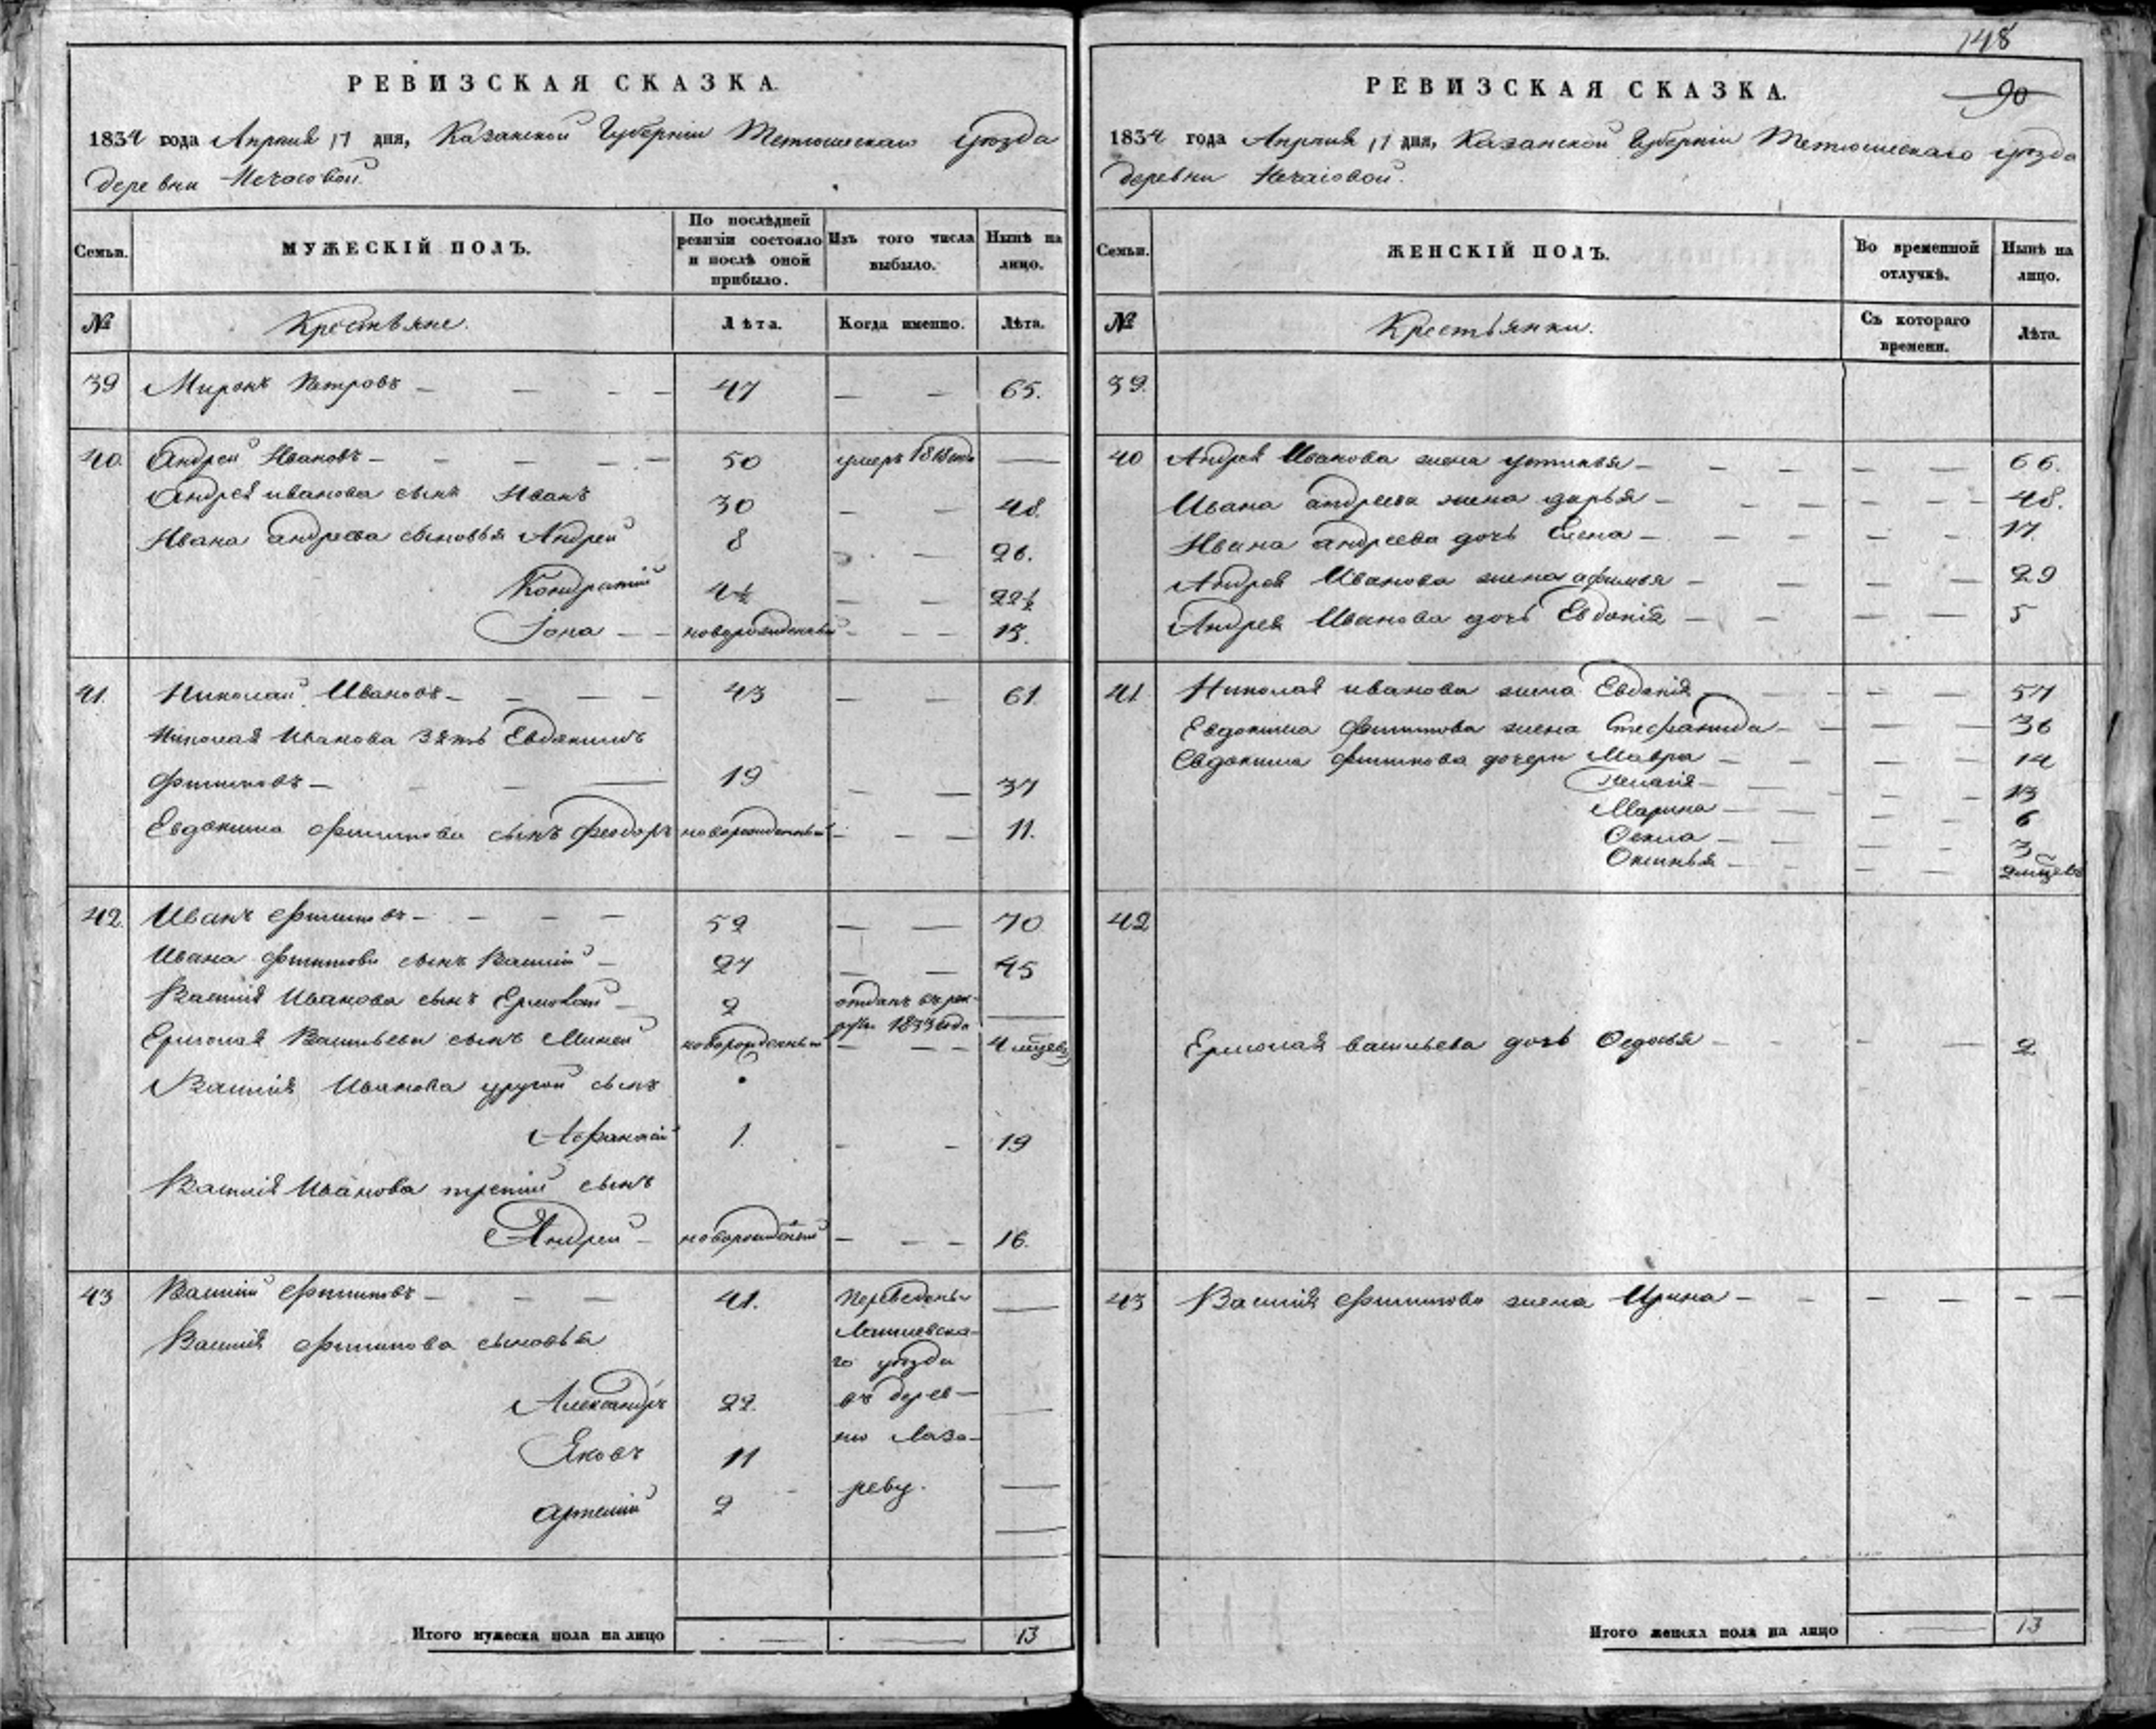 РЕВИЗСКАЯ СКАЗКА.
1834 года Апреля 17 дня, Казанской Губерніи Тетюшскаго уѣзда
деревни Нечасовой.
Семьи.
МУЖЕСКІЙ ПОЛЪ.
По послѣдней
ревизіи состояло
и послѣ оной
прибыло.
Изъ того числа
выбыло.
Нынѣ на
лицо.
№
Крестьяне.
Лѣта.
Когда именно.
Лѣта.
39 Миронъ Петровъ — — — — 47 — — 65.
40. Андрей Ивановъ — — — — — 50 умеръ 1818 года —
Андрея иванова сынъ Иванъ 30 — — 48.
Ивана андреева сыновья Андрей 8 — — 26.
Кондратий 4½ — — 22½
Іона — — новорожденный — — — 15.
41. Николай Ивановъ — — — — 43 — — 61.
Николая Иванова зять Евдокимъ
Филиповъ — — — — 19 — — 37
Евдокима филипова сынъ Феодоръ новорожденный — — — 11.
42. Иванъ Филиповъ — — — — 52 — — 70
Ивана филипова сынъ Василій — 27 — — 45
Василія Иванова сынъ Ермолай — 2 отданъ въ рек-
руты 1833 года —
Ермолая Васильева сынъ Миней новорожденный — — — 4 мѣсецовъ
Василія Иванова другой сынъ
Афанасий 1. — — 19
Василія Иванова третий сынъ
Андрей — новорожденый — — — 16.
43 Василій Филиповъ — — — 41. Переведены —
Василія филипова сыновья Лаишевска-
го уѣзда
Александръ 22. въ дерев- —
Яковъ 11 ню Лаза-
реву. —
Артемий 2 —
Итого мужеска пола на лицо — — 13
148
90
РЕВИЗСКАЯ СКАЗКА.
1834 года Апреля 17 дня, Казанской Губерніи Тетюшскаго уѣзда
деревни Нечасовой.
Семьи.
ЖЕНСКІЙ ПОЛЪ.
Во временной
отлучкѣ.
Нынѣ на
лицо.
№
Крестьянки.
Съ котораго
времени.
Лѣта.
39.
40 Андрея Иванова жена устинья — — — — — 66.
Ивана андреева жена дарья — — — — — 48.
Ивана андреева дочь Елена — — — — — 17.
Андрея Иванова жена афимья — — — — — 29
Андрея Иванова дочь Евдокія — — — — — 5
41 Николая иванова жена Евдокія — — — — — 57
Евдокима филипова жена Стефанида — — — — 36
Евдокима филипова дочери Мавра — — — — — 14
Пелагія — — — — — 13
Марина — — — — 6
Фекла — — — — 3
Оксинья — — — — 2 мѣсецовъ
42
Ермолая васильева дочь Федосья — — — — — 2
43 Василія Филипова жена Ирина — — — — — — —
Итого женска пола на лицо — 13